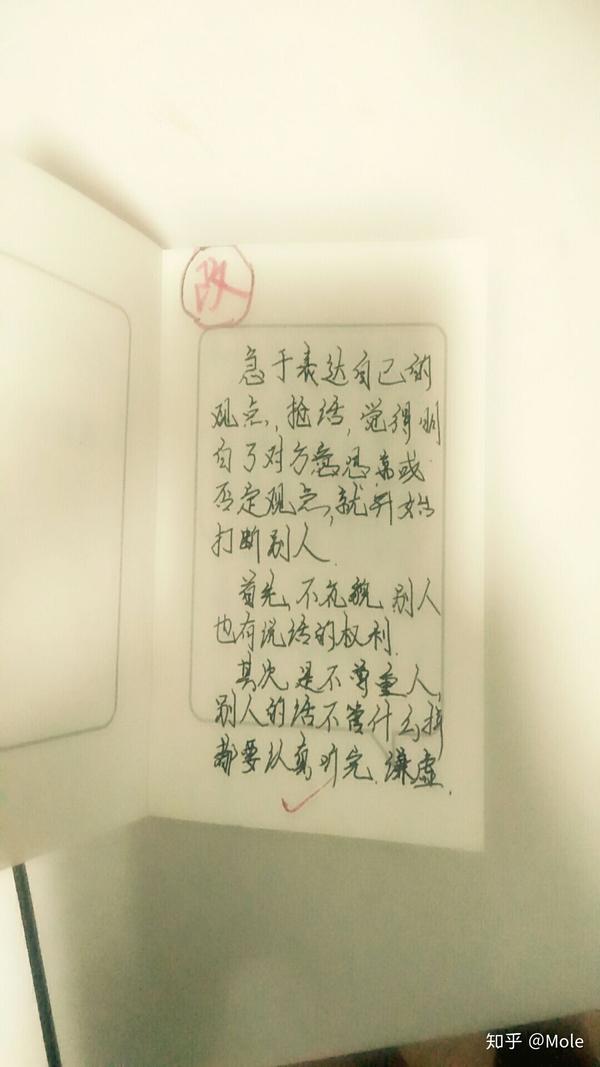 改
急于表达自己的
观点,抢话,觉得明
白了对方意思或
否定观点,就开始
打断别人.
首先,不礼貌,别人
也有说话的权利.
其次,是不尊重人,
别人的话不管什么样
都要认真听完.谦虚.
知乎 @Mole